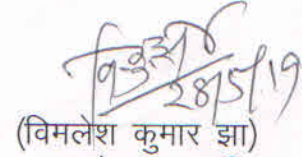 28/5/19
(विमलेश कुमार झा)